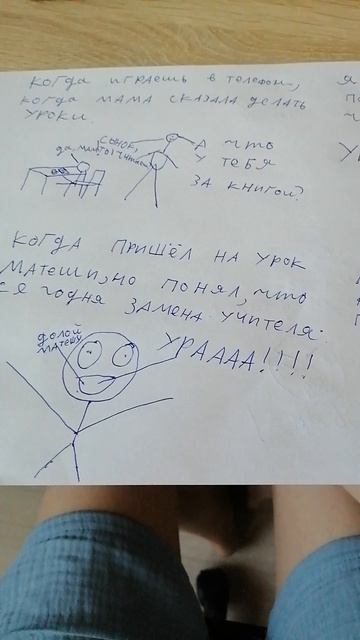 КОГДА ИГРАЕШЬ В ТЕЛЕФОН,
КОГДА МАМА СКАЗАЛА ДЕЛАТЬ
УРОКИ.
СЫНОК, А ЧТО
да, мам, тоЧитаю У ТЕБЯ
ЗА КНИГОЙ?
КОГДА ПРИШЁЛ НА УРОК
МАТЕШИ, НО ПОНЯЛ, ЧТО
СЕГОДНЯ ЗАМЕНА УЧИТЕЛЯ:
ДОЛОЙ
МАТЕШУ
УРАААА!!!!